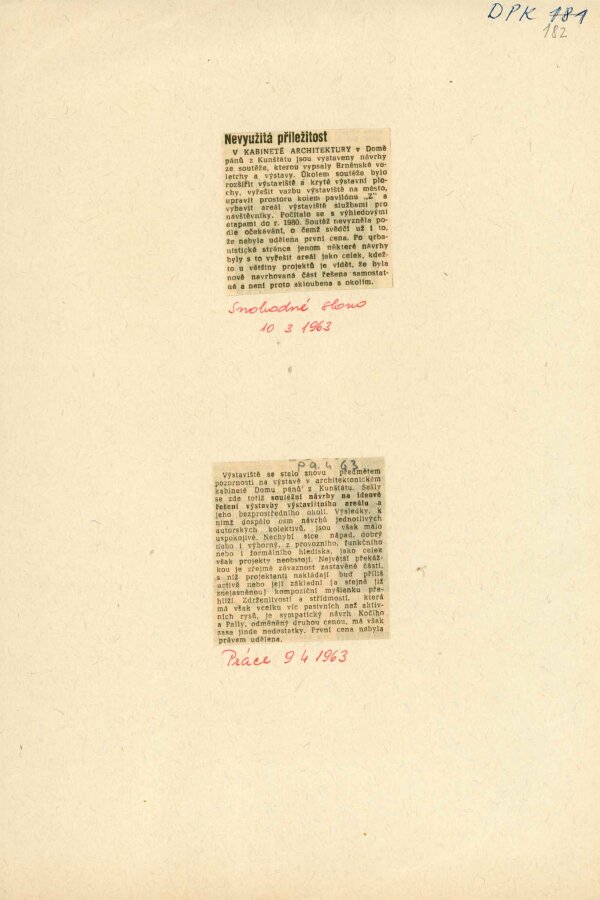 DPK 181
182
Nevyužitá příležitost
V KABINETĚ ARCHITEKTURY v Domě
pánů z Kunštátu jsou vystaveny návrhy
ze soutěže, kterou vypsaly Brněnské ve-
letrhy a výstavy. Úkolem soutěže bylo
rozšířit výstaviště a kryté výstavní plo-
chy, vyřešit vazbu výstaviště na město,
upravit prostoru kolem pavilónu „Z" a
vybavit areál výstaviště službami pro
návštěvníky. Počítalo se s výhledovými
etapami do r. 1980. Soutěž nevyzněla po-
dle očekávání, o čemž svědčí už i to,
že nebyla udělena první cena. Po urba-
nistické stránce jenom některé návrhy
byly s to vyřešit areál jako celek, kdež-
to u většiny projektů je vidět, že byla
nově navrhovaná část řešena samostat-
ně a není proto skloubena s okolím.
Svobodné slovo
10 3 1963
P 9. 4 63
Výstaviště se stalo znovu předmětem
pozornosti na výstavě v architektonickém
kabinetě Domu pánů z Kunštátu. Sešly
se zde totiž soutěžní návrhy na ideové
řešení výstavby výstavištního areálu a
jeho bezprostředního okolí. Výsledky, k
nimž dospělo osm návrhů jednotlivých
autorských kolektivů, jsou však málo
uspokojivé. Nechybí sice nápad, dobrý
nebo i výborný, z provozního, funkčního
nebo i formálního hlediska, jako celek
však projekty neobstojí. Největší překáž-
kou je zřejmě závaznost zastavěné části,
s níž projektanti nakládají buď příliš
uctivě nebo její základní (a stejně již
znejasněnou) kompoziční myšlenku pře-
hlíží. Zdrženlivostí a střídmostí, která
má však vcelku víc pasivních než aktiv-
ních rysů, je sympatický návrh Kočího
a Pally, odměněný druhou cenou, má však
zase jinde nedostatky. První cena nebyla
právem udělena.
Práce 9 4 1963